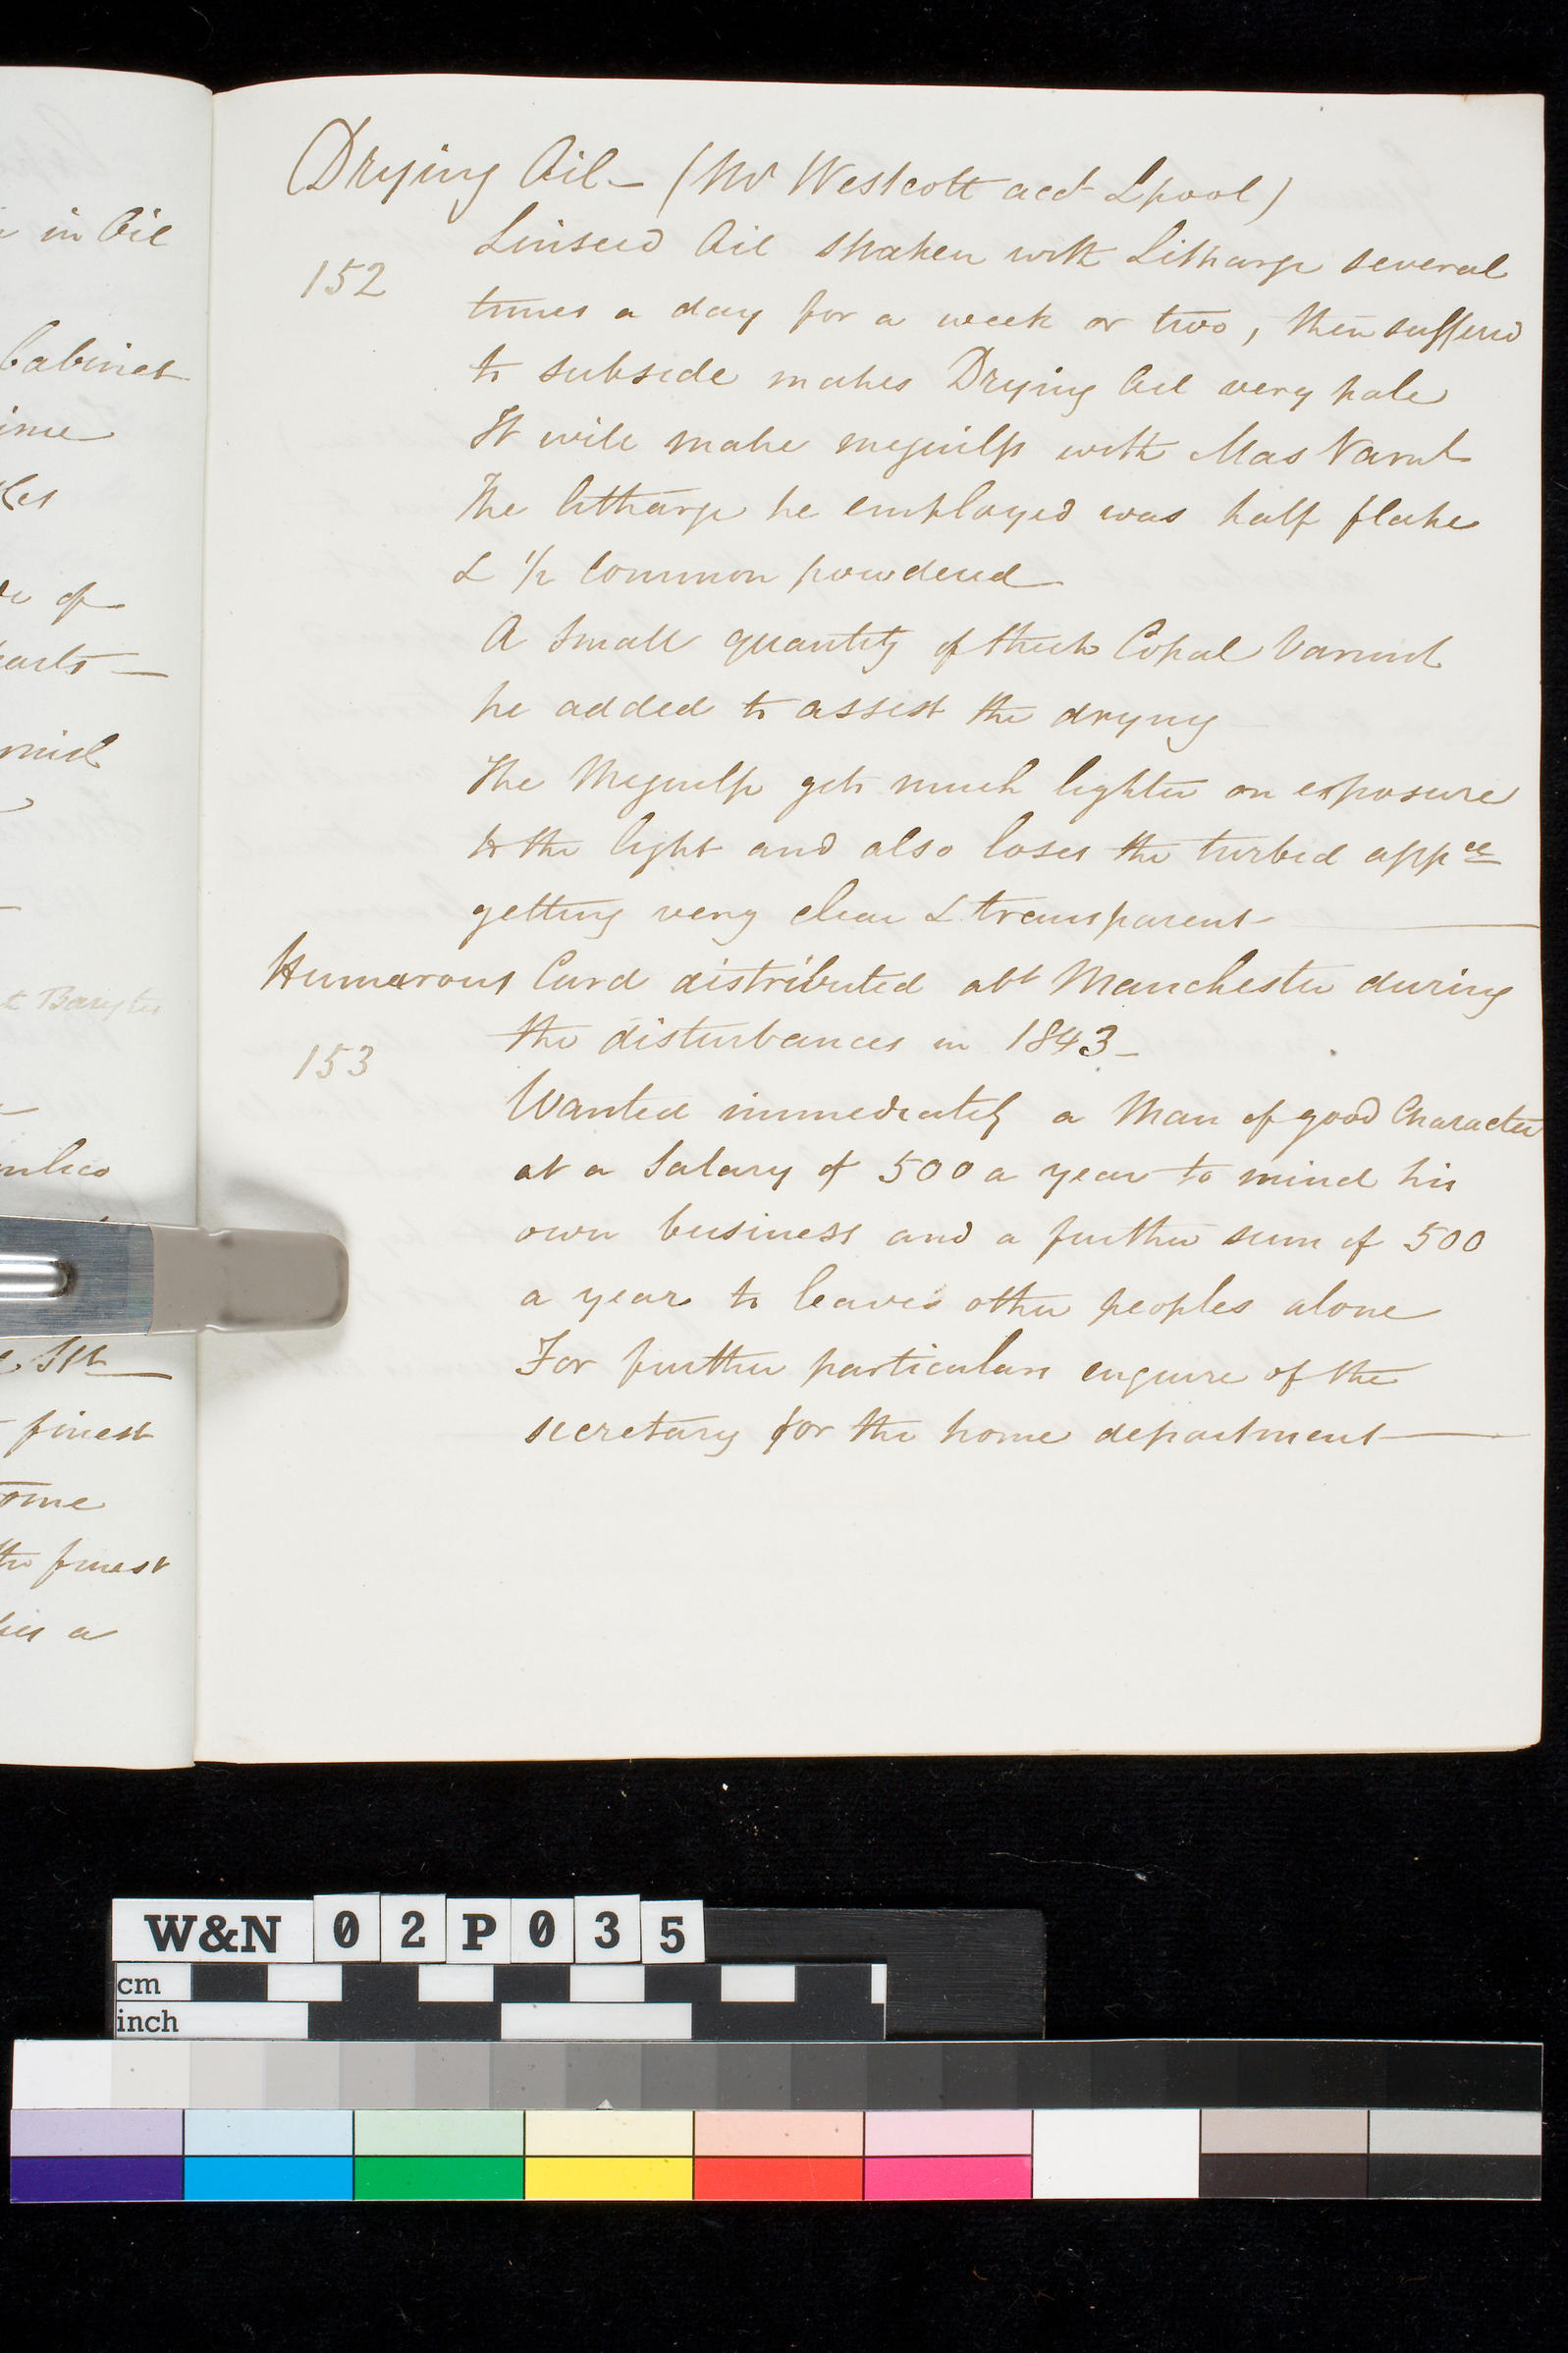 in Oil
Cabinet
of
finest
ome
finest
a
Drying Oil — (Mr Westcott acct Lpool)
152
Linseed Oil shaken with Litharge several
times a day for a week or two, then suffered
to subside makes Drying Oil very pale
It will make meguilp with Mas Varnh
The litharge he employed was half flake
& 1/2 Common powdered
A small quantity of thick Copal Varnish
he added to assist the drying
The Meguilp gets much lighter on exposure
to the light and also loses the turbid appce
getting very clear & transparent
Humerous Card distributed abt Manchester during
153
the disturbances in 1843 —
Wanted immediately a Man of good Character
at a Salary of 500 a year to mind his
own business and a further sum of 500
a year to leave other peoples alone
For further particulars enquire of the
secretary for the home department
W&N 02P035
cm
inch